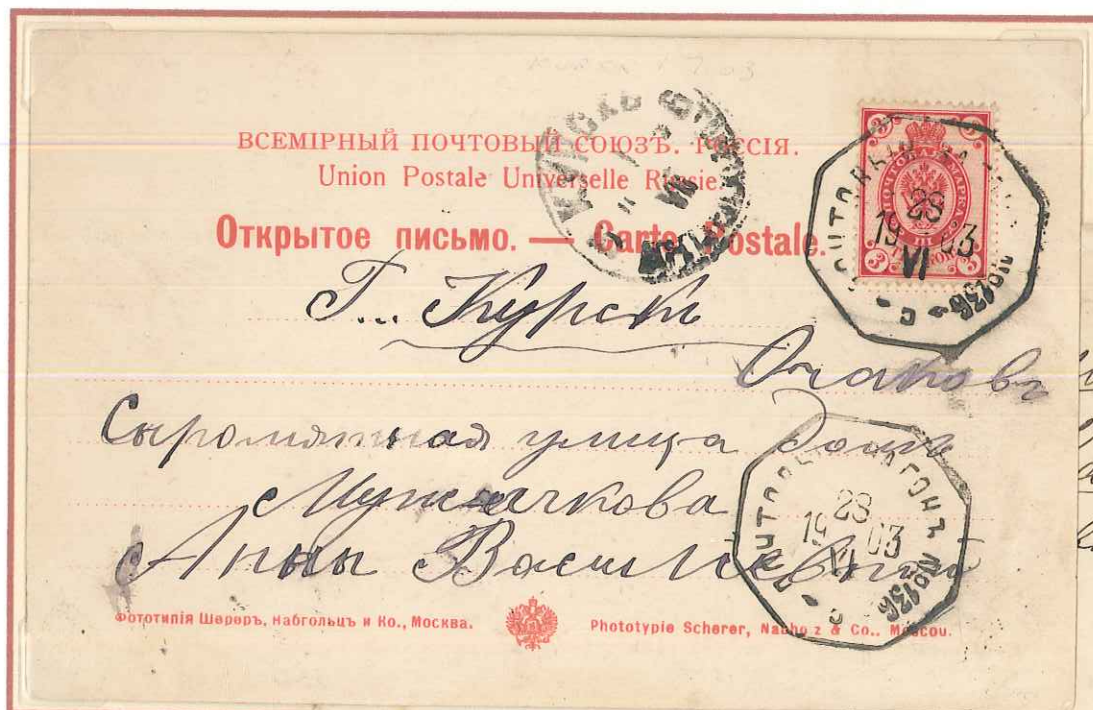 ВСЕМІРНЫЙ ПОЧТОВЫЙ СОЮЗЪ. РОССІЯ.
Union Postale Universelle Russie.
Открытое письмо. — Carte Postale.
КУРСКЪ
ПОЧТОВАЯ МАРКА
3 3 3 3
ПОЧТОВЫЙ ВАГОНЪ №136
28
19 VI 03
Г... Курскъ
Очаковъ
Сыромятная улица домъ
Мужичкова
Анны Васильевны
ПОЧТОВЫЙ ВАГОНЪ №136
28
19 VI 03
Фототипія Шереръ, Набгольцъ и Ко., Москва.
Phototypie Scherer, Nabholz & Co., Moscou.